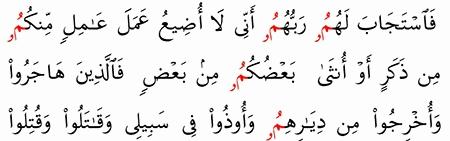 فَٱسْتَجَابَ لَهُمُۥ رَبُّهُمُۥ أَنِّى لَا أُضِيعُ عَمَلَ عَٰمِلٍ مِّنكُمُۥ
مِن ذَكَرٍ أَوْ أُنثَىٰ بَعْضُكُمُۥ مِنۢ بَعْضٍ فَٱلَّذِينَ هَاجَرُوا۟
وَأُخْرِجُوا۟ مِن دِيَٰرِهِمُۥ وَأُوذُوا۟ فِى سَبِيلِى وَقَٰتَلُوا۟ وَقُتِلُوا۟